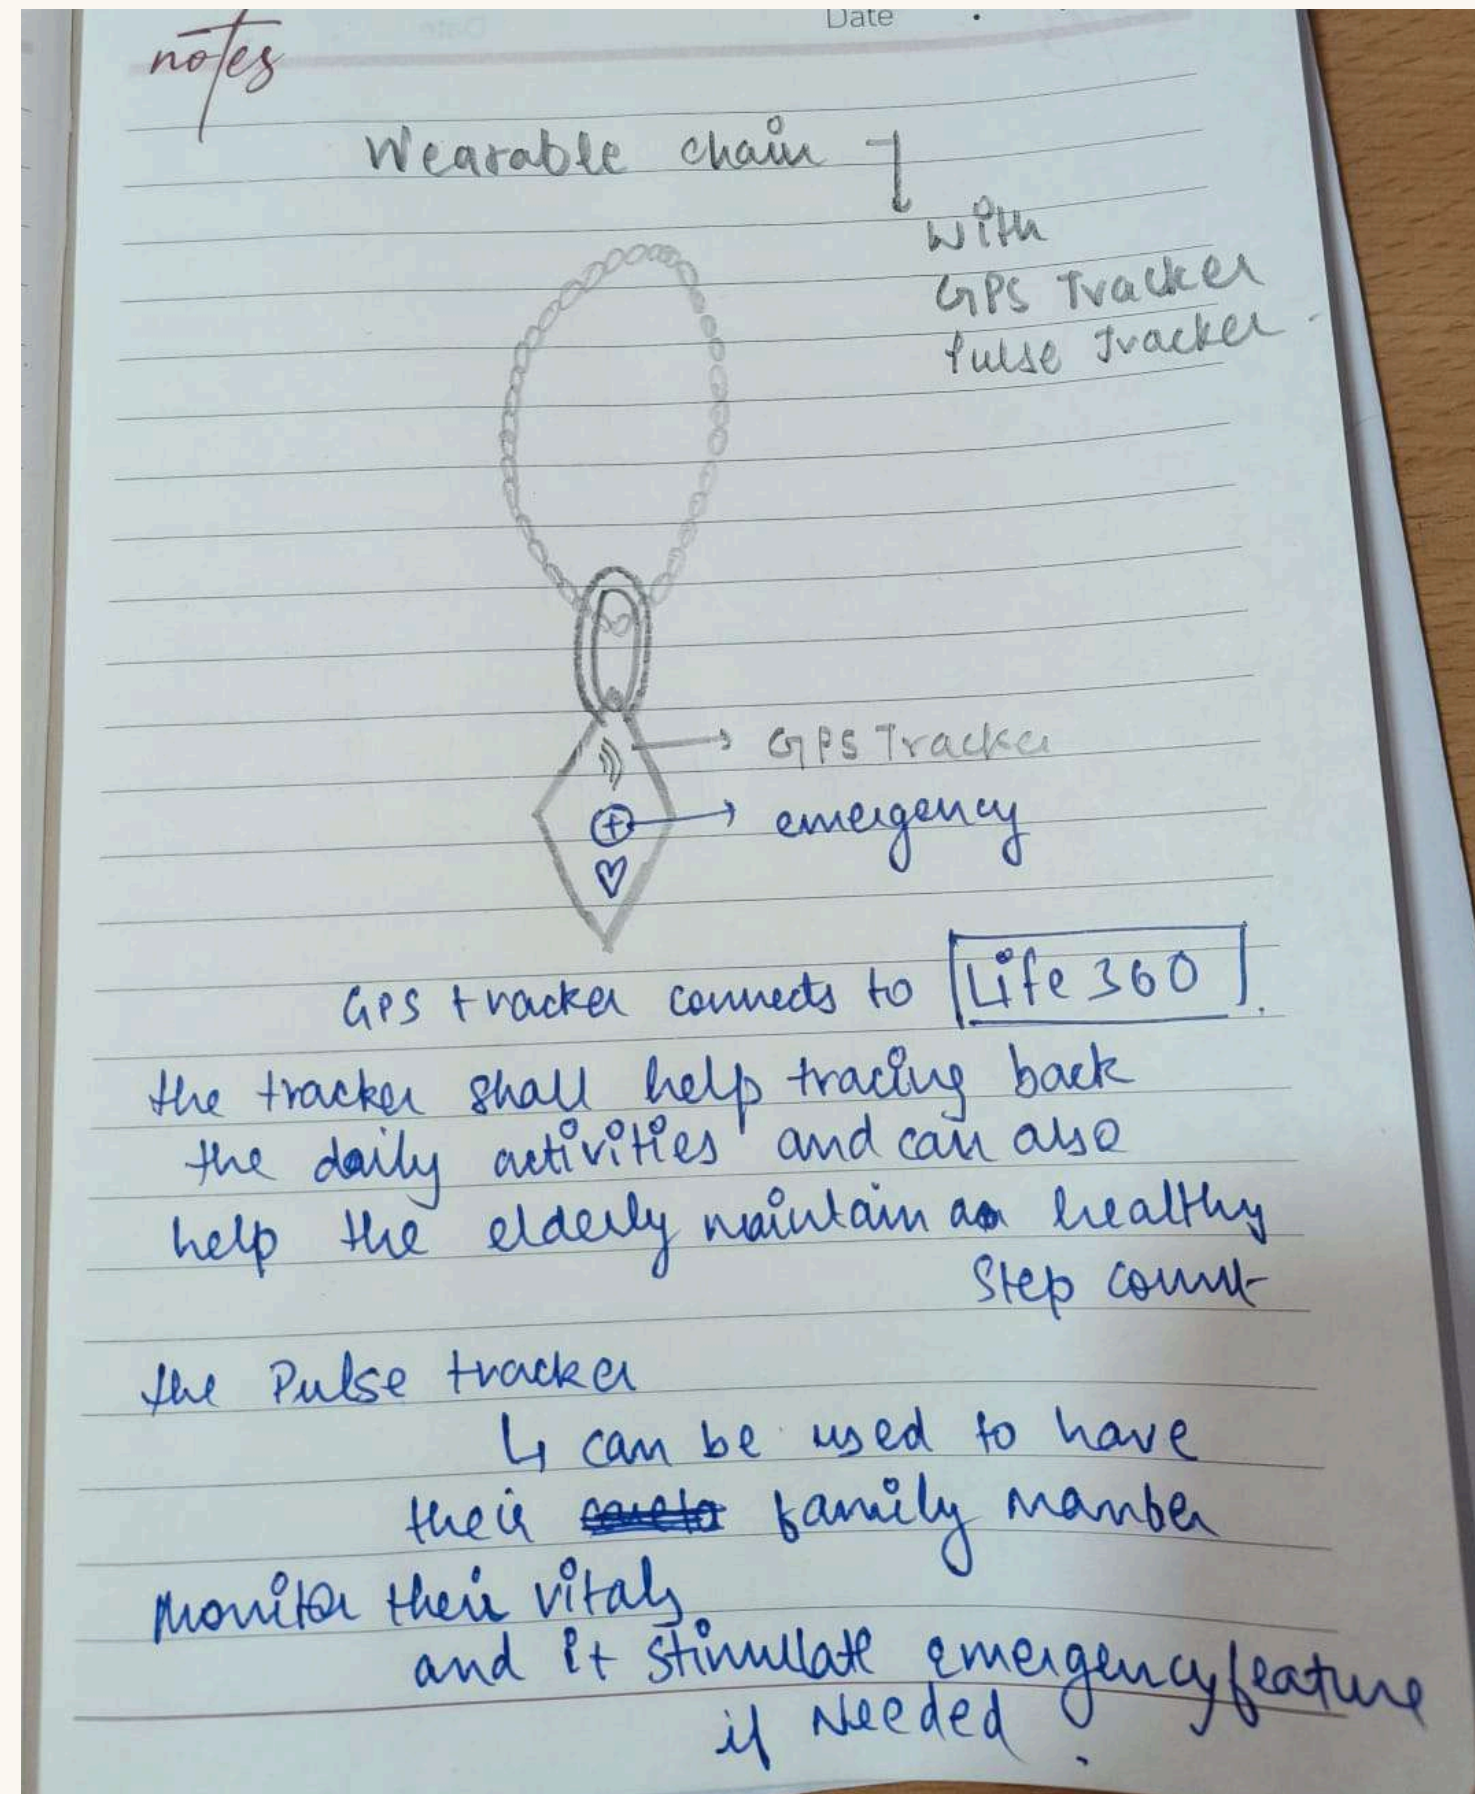 Date
notes
Wearable chain
With
GPS Tracker
Pulse Tracker
GPS Tracker
emergency
GPS tracker connects to Life 360.
the tracker shall help tracing back
the daily activities and can also
help the elderly maintain a healthy
Step count
the Pulse tracker
can be used to have
their family mamber
Monitor their vitals
and it stimullate emergency feature
if Needed.